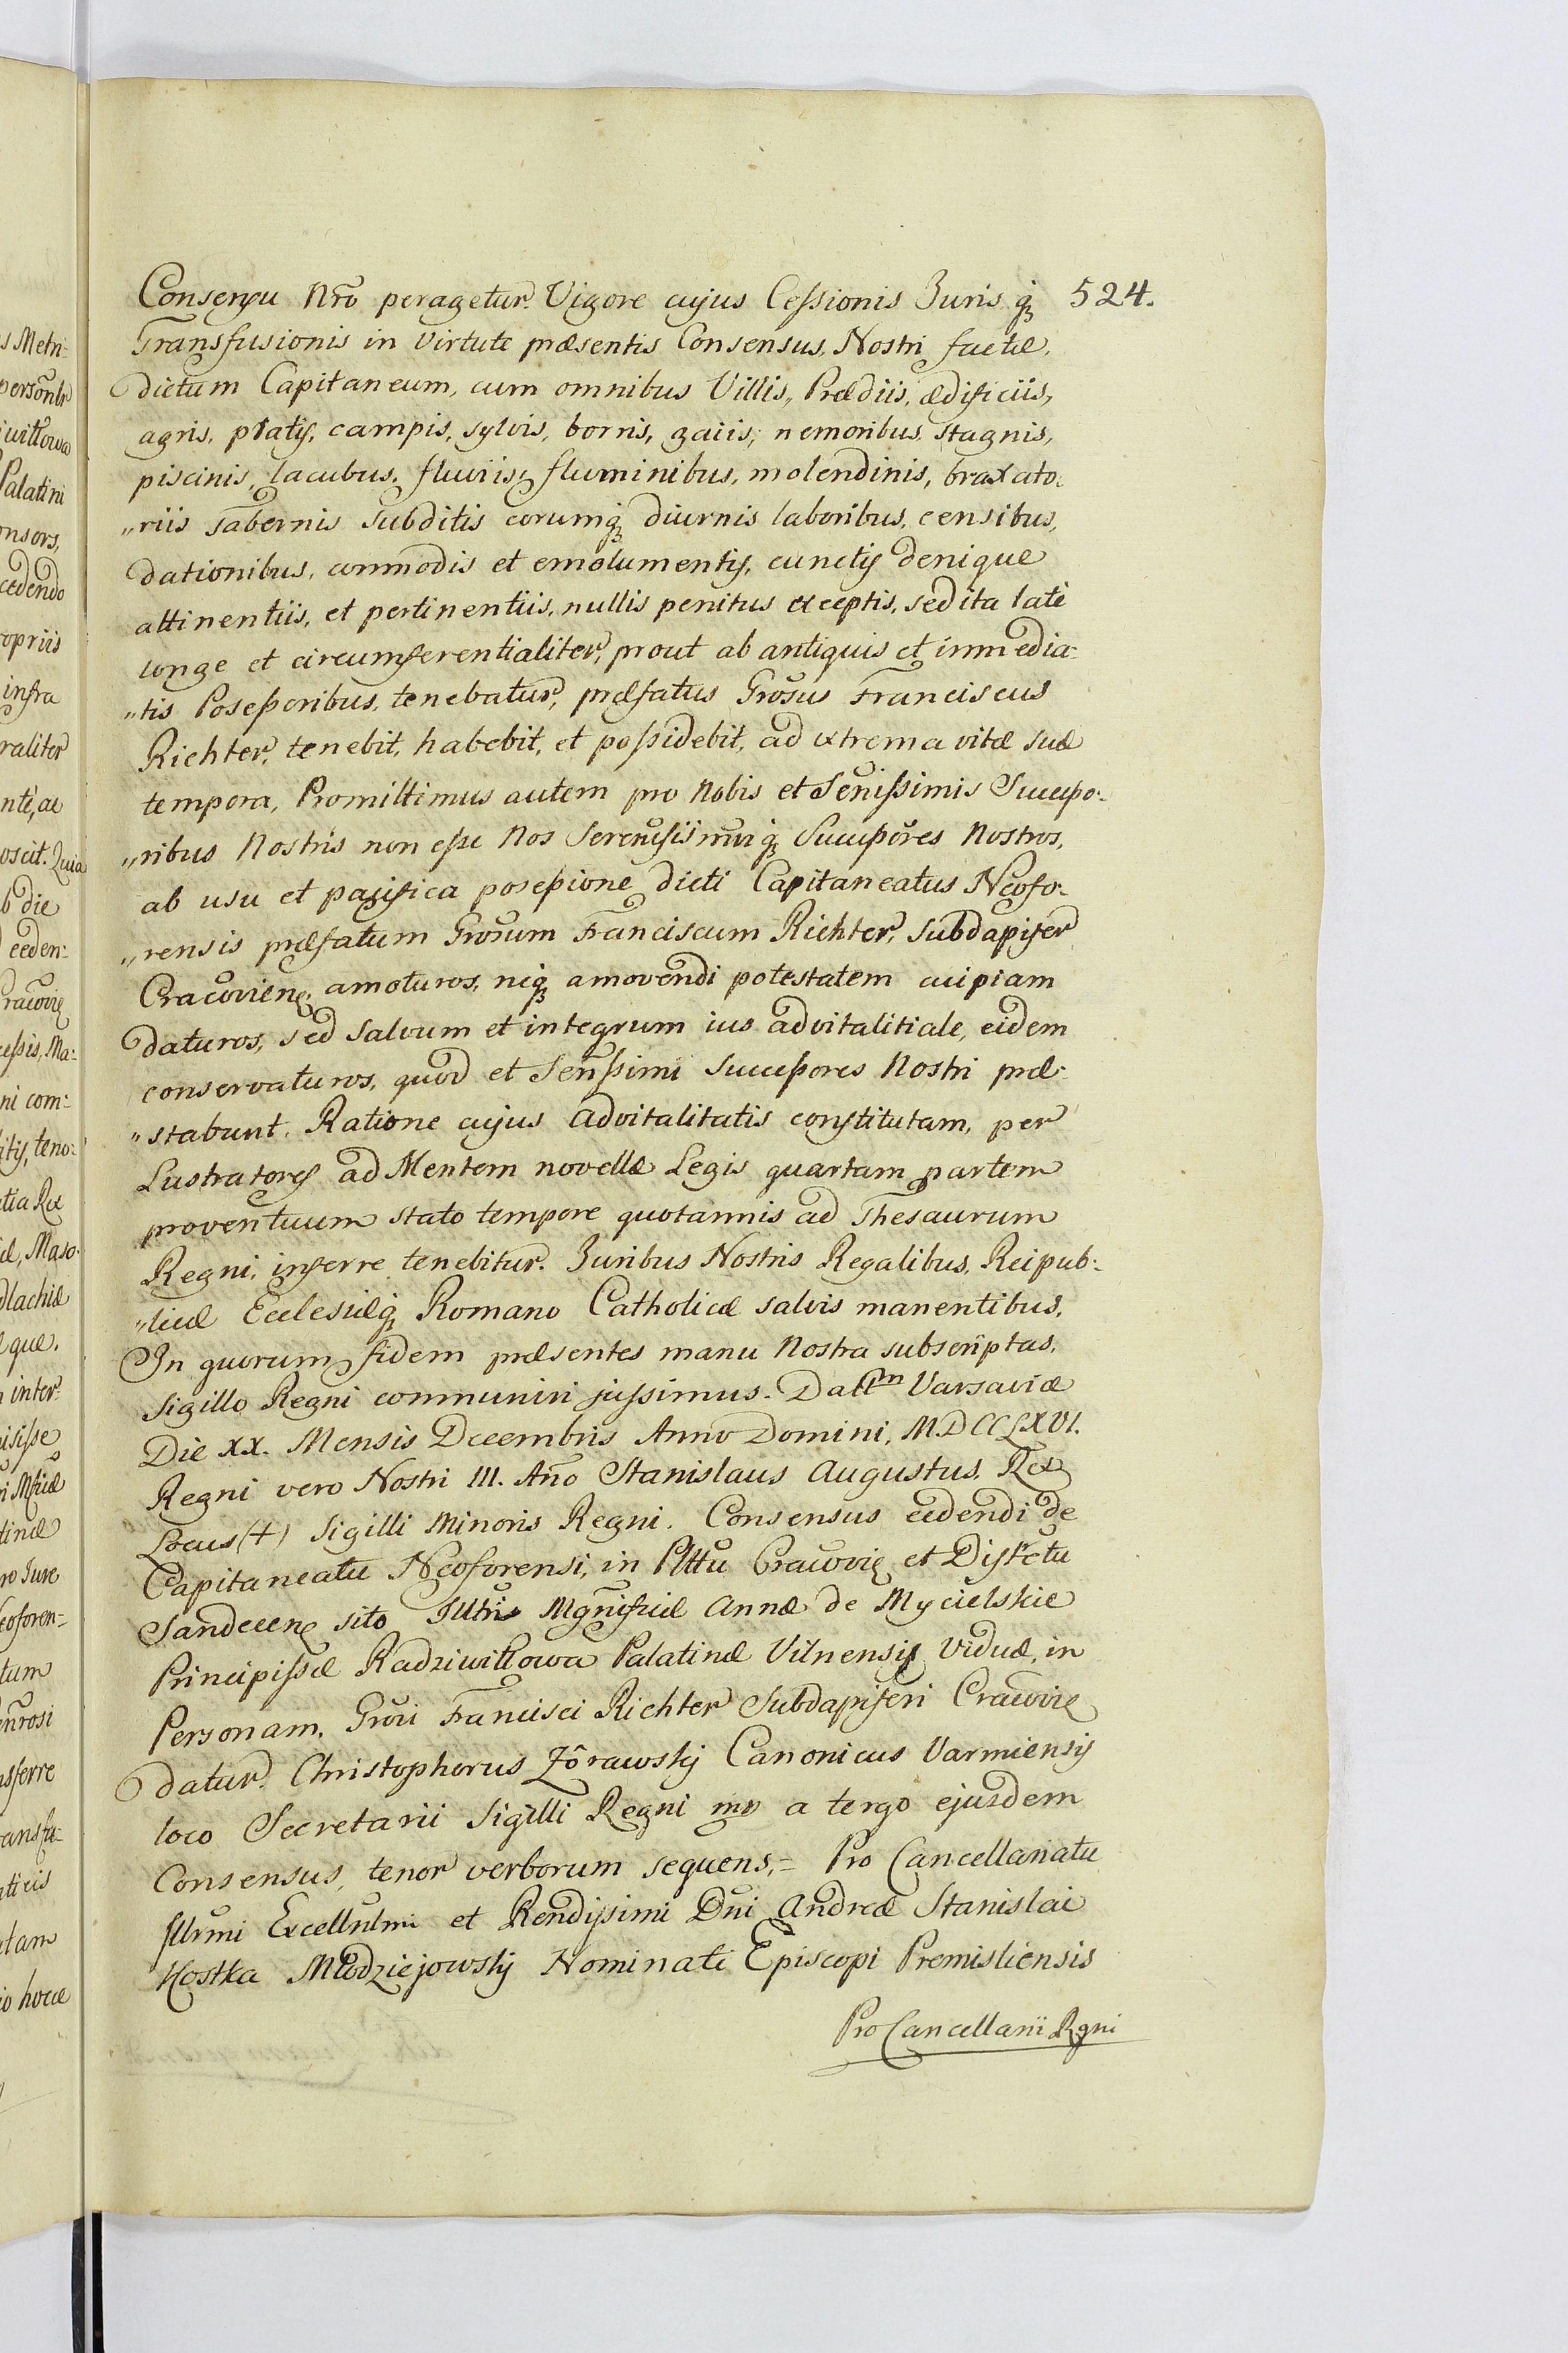 Consensu Nrô peragetur. Vigore cujus Cessionis Juris q; 524.
Transfusionis in virtute præsentis Consensus, Nostri factæ,
dictum Capitaneum, cum omnibus Villis, Prædiis, ædificiis,
agris, pratis, campis, sylvis, borris, gaiis, nemoribus, stagnis,
piscinis, lacubus, fluviis, fluminibus, molendinis, braxato:
„riis Tabernis Subditis eorumq; diurnis laboribus, censibus,
dationibus, commodis et emolumentis, cunctis denique
attinentiis, et pertinentiis, nullis penitus exceptis, sed ita latè
longe et circumferentialiter, prout ab antiquis et immedia:
„tis Possessoribus, tenebatur, præfatus Grosus Franciscus
Richter, tenebit, habebit, et possidebit, ad extrema vitæ suæ
tempora, Promittimus autem pro Nobis et Senissimis Successo:
„ribus Nostris non esse Nos Serenissimosq; Successores Nostros,
ab usu et pacifica possessione dicti Capitaneatus Neofo:
„rensis præfatum Grosum Franciscum Richter, Subdapifer
Cracoviens, amoturos, neq; amovendi potestatem cuipiam
daturos, sed Salvum et integrum ius advitalitiale, eidem
conservaturos, quod et Senssimi Successores Nostri præ:
„stabunt. Ratione cujus advitalitatis constitutam, per
Lustratores ad Mentem novellæ Legis quartam partem
proventuum stato tempore quotannis ad Thesaurum
Regni, inferre tenebitur. Juribus Nostris Regalibus, Reipub:
„licæ Ecclesiæq; Romano Catholicæ salvis manentibus,
In quorum fidem præsentes manu Nostra subscriptas,
Sigillo Regni communiri jussimus. Dattm Varsaviæ
Die XX. Mensis Decembris Anno Domini, MDCCLXVI.
Regni vero Nostri III. Año Stanislaus Augustus, Rex
Locus (+) Sigilli Minoris Regni. Consensus cedendi de
Capitaneatu Neoforensi, in Plttu Cracovie et Districtu
Sandecens sito Illtris Mgnificæ Annæ de Mycielskie
Principissæ Radziwiłłowa Palatinæ Vilnensis Viduæ, in
Personam, Grosi Francisci Richter Subdapiferi Cracovie
datur. Christophorus Zôrawsky Canonicus Varmiensis
loco Secretarii Sigilli Regni mp a tergo ejusdem
Consensus, tenor verborum sequens, = Pro Cancellariatu
Illrmi Excellntmi et Rendissimi Dñi Andreæ Stanislai
Kostka Młodziejowsky Nominati Episcopi Premisliensis
Pro Cancellarii Rgni